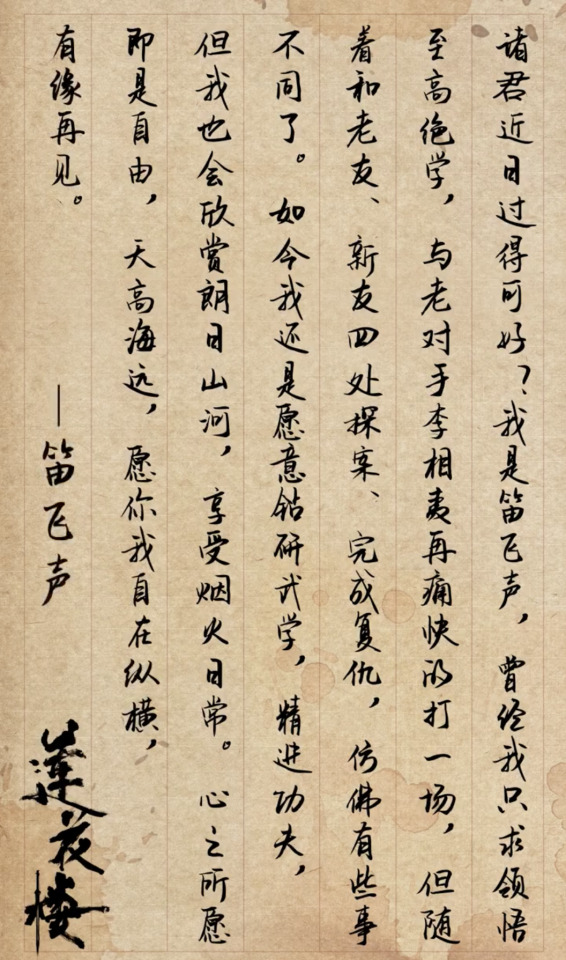 诸君近日过得可好？我是笛飞声，曾经我只求领悟
至高绝学，与老对手李相夷再痛快的打一场，但随
着和老友、新友四处探案、完成复仇，仿佛有些事
不同了。如今我还是愿意钻研武学，精进功夫，
但我也会欣赏朗日山河，享受烟火日常。心之所愿
即是自由，天高海远，愿你我自在纵横，
有缘再见。
——笛飞声
莲花楼